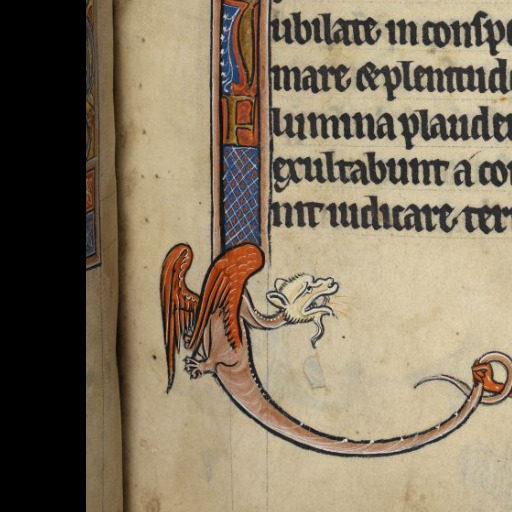 ubilate in consp
mare & plenitud
lumina plauder
exultabunt a con
nit iudicare ter